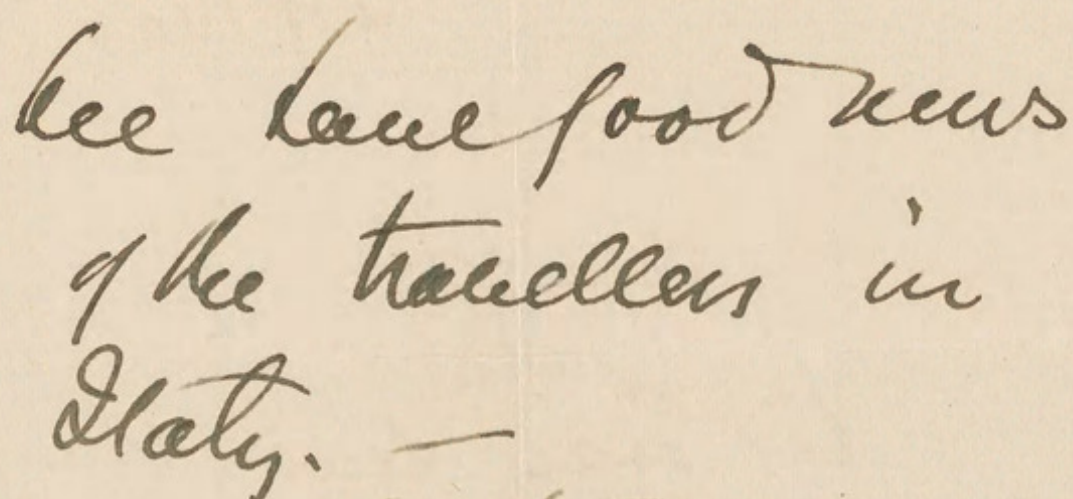 We have good news
of the travellers in
Italy. —